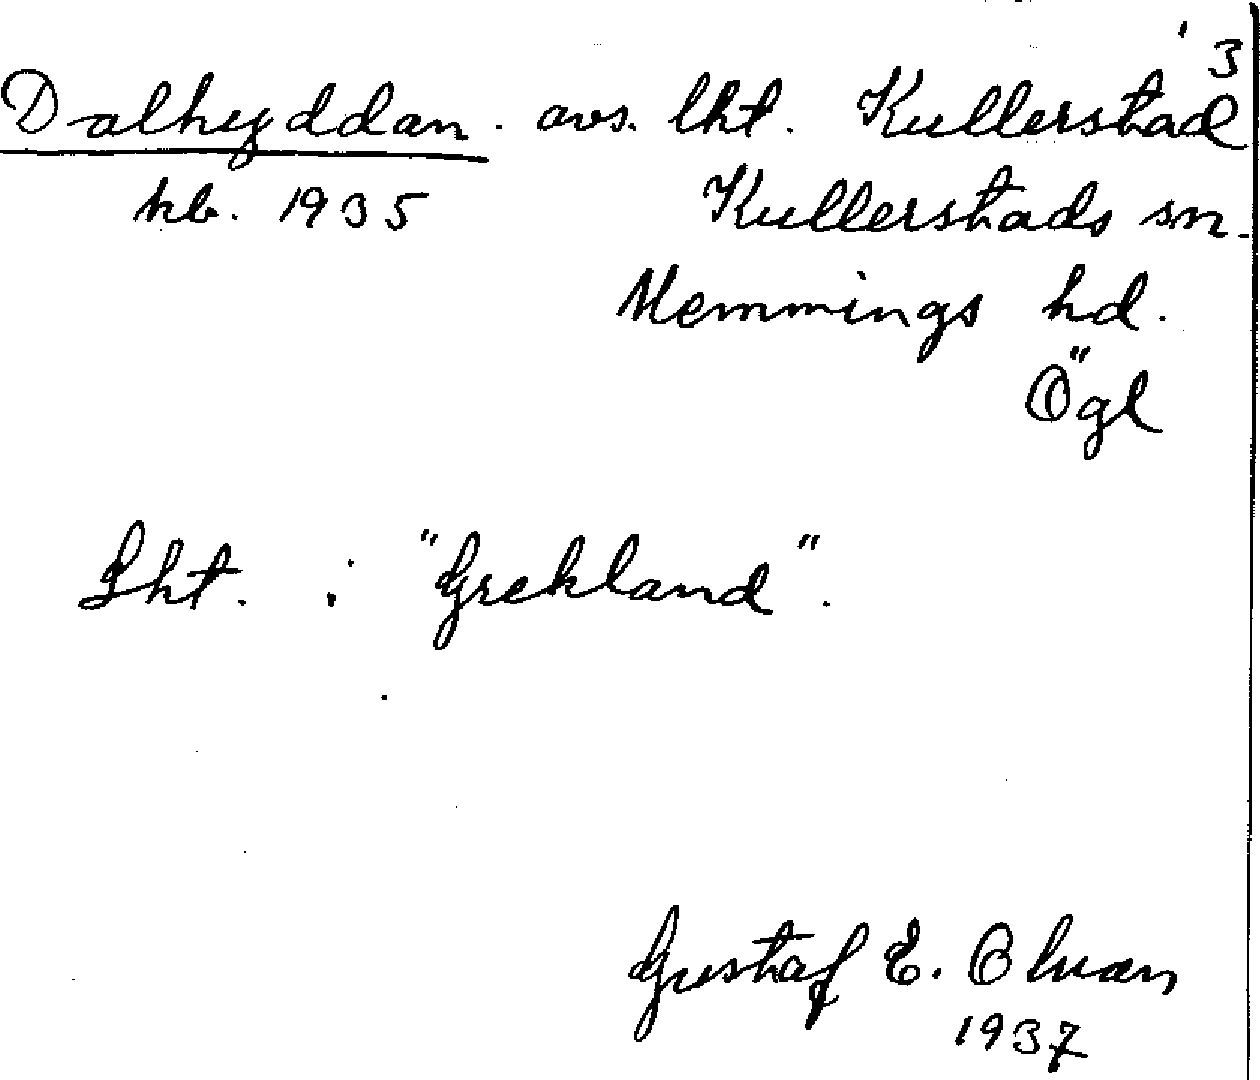 3
Dalhyddan. avs. lht. Kullerstad
kb. 1935 Kullerstads sn.
Memmings hd.
Ögl
Lht. i "Grekland".
Gustaf E. Olman
1937